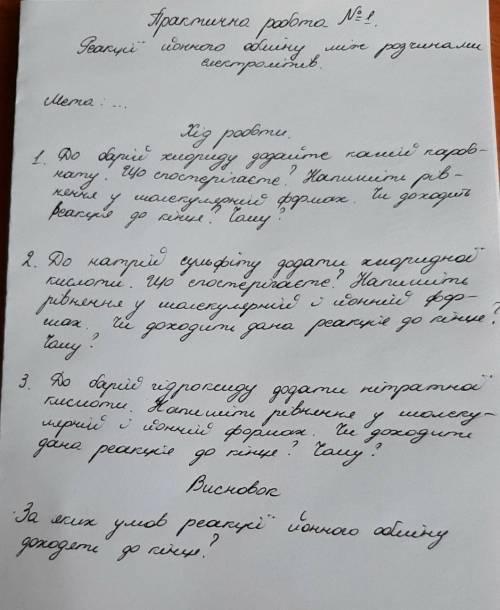 Практична робота №1.
Реакції йонного обміну між розчинами
електролітів.
Мета: ...
Хід роботи.
1. До барій хлориду додайте калій карбо-
нату. Що спостерігаєте? Напишіть рів-
няння у молекулярній формах. Чи доходить
реакція до кінця? Чому?
2. До натрій сульфіту додати хлоридної
кислоти. Що спостерігаєте? Напишіть
рівняння у молекулярній і йонній фор-
мах. Чи доходить дана реакція до кінця?
Чому?
3. До барій гідроксиду додати нітратної
кислоти. Напишіть рівняння у молеку-
лярній і йонній формах. Чи доходить
дана реакція до кінця? Чому?
Висновок
За яких умов реакції йонного обміну
доходять до кінця?